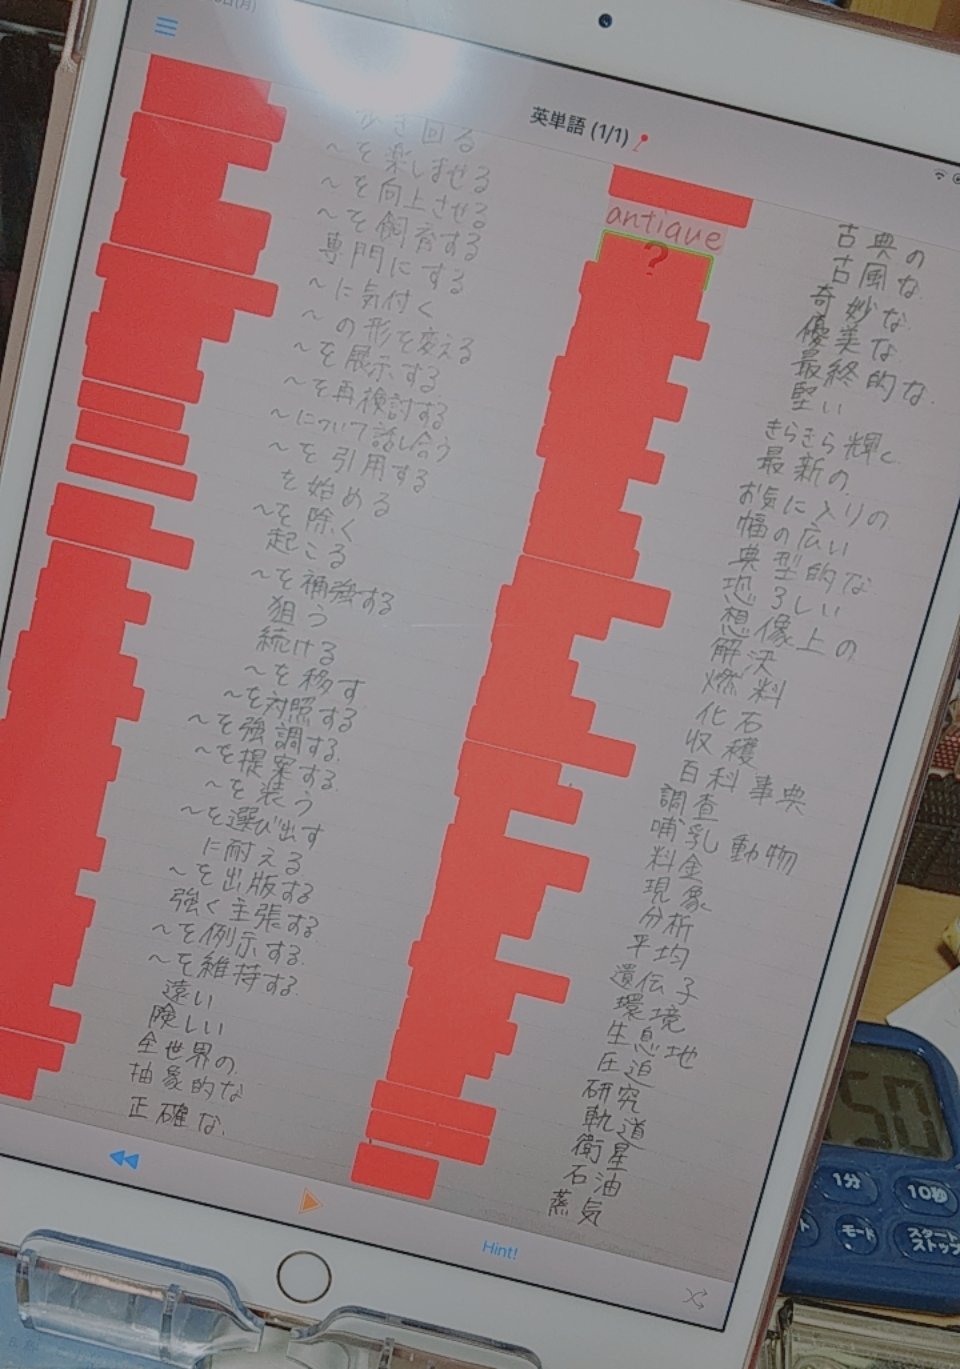 日(月)
英単語 (1/1)
き回る
～を楽しませる
～を向上させる
～を飼育する
専門にする
～に気付く
～の形を変える
～を展示する
～を再検討する
～について話し合う
～を引用する
を始める
～を除く
起こる
～を補強する
狙う
続ける
～を移す
～を対照する
～を強調する
～を提案する
～を装う
～を選び出す
に耐える
～を出版する
強く主張する
～を例示する
～を維持する
遠い
険しい
全世界の
抽象的な
正確な
古典の
antique
古風な
?
奇妙な
優美な
最終的な
堅い
きらきら輝く
最新の
お気に入りの
幅の広い
典型的な
恐ろしい
想像上の
解決
燃料
化石
収穫
百科事典
調査
哺乳動物
料金
現象
分析
平均
遺伝子
環境
生息地
圧迫
研究
軌道
衛星
石油
蒸気
Hint!
50
1分
10秒
モード
スタート
ストップ